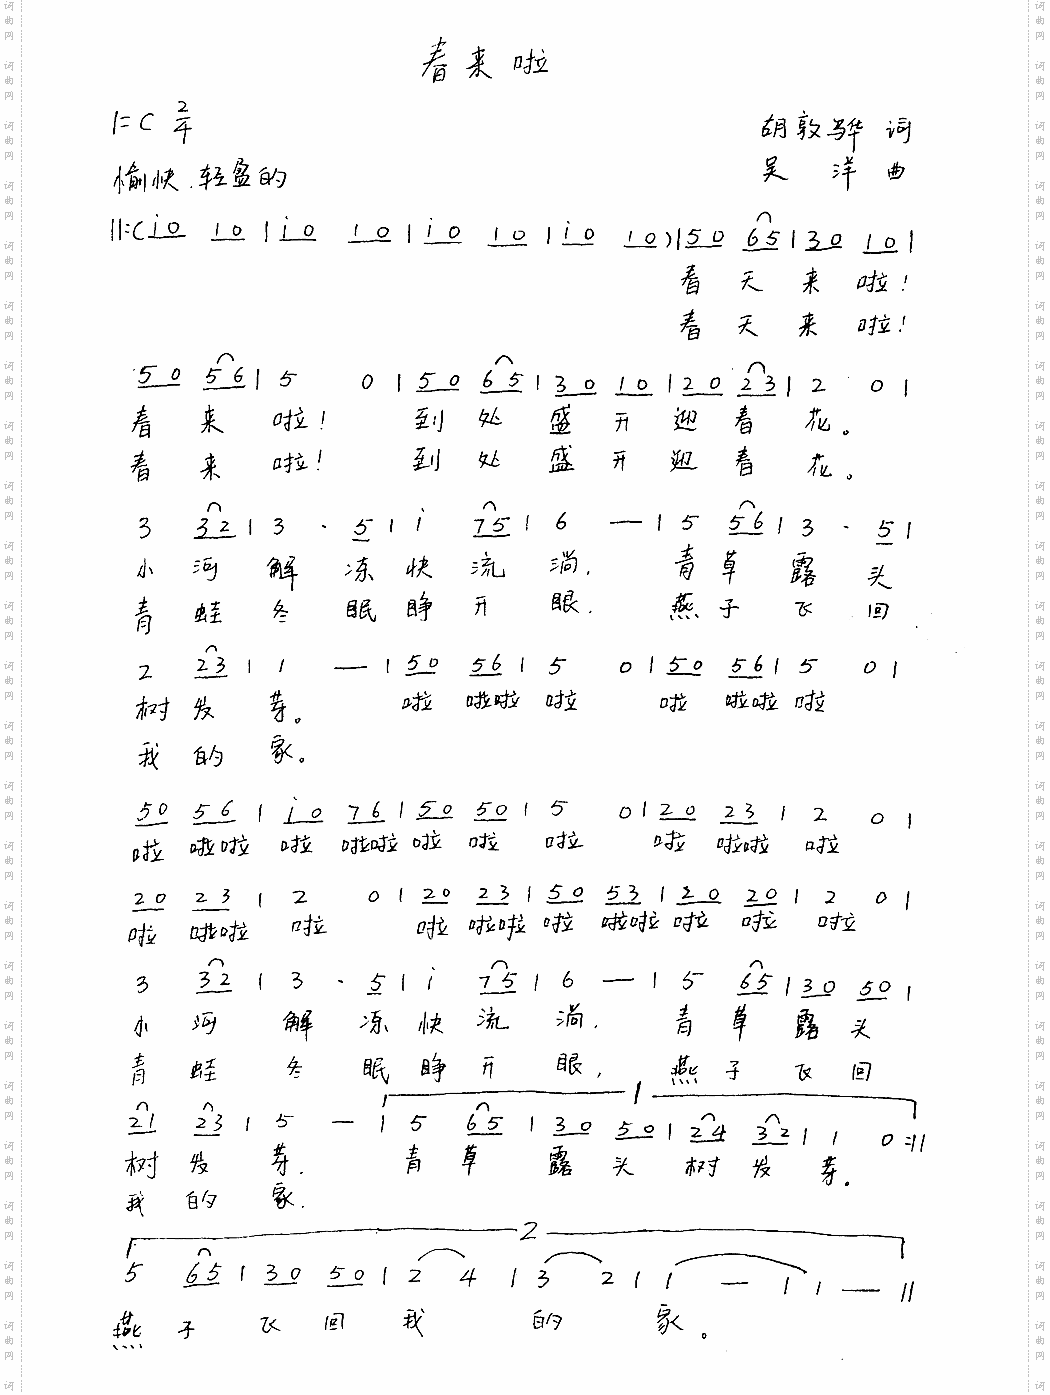 春来啦
1=C 2/4
胡敦骅 词
愉快.轻盈的
吴 洋 曲
||:(i0 10 | i0 10 | i0 10 | i0 10) | 50 65 | 30 10 |
春 天 来 啦!
春 天 来 啦!
50 56 | 5 0 | 50 65 | 30 10 | 20 23 | 2 0 |
春 来 啦! 到 处 盛 开 迎 春 花。
春 来 啦! 到 处 盛 开 迎 春 花。
3 32 | 3 · 5 | i 75 | 6 — | 5 56 | 3 · 5 |
小 河 解 冻 快 流 淌. 青 草 露 头
青 蛙 冬 眠 睁 开 眼. 燕 子 飞 回
2 23 | 1 — | 50 56 | 5 0 | 50 56 | 5 0 |
树 发 芽。 啦 啦啦 啦 啦 啦啦 啦
我 的 家。
50 56 | i0 76 | 50 50 | 5 0 | 20 23 | 2 0 |
啦 啦啦 啦 啦啦 啦 啦 啦 啦 啦啦 啦
20 23 | 2 0 | 20 23 | 50 53 | 20 20 | 2 0 |
啦 啦啦 啦 啦 啦啦 啦 啦啦 啦 啦 啦
3 32 | 3 · 5 | i 75 | 6 — | 5 65 | 30 50 |
小 河 解 冻 快 流 淌. 青 草 露 头
青 蛙 冬 眠 睁 开 眼, 燕 子 飞 回
1
21 23 | 5 — | 5 65 | 30 50 | 24 32 | 1 0 :||
树 发 芽. 青 草 露 头 树 发 芽.
我 的 家.
2
5 65 | 30 50 | 2 4 | 3 2 | 1 — | 1 — ||
燕 子 飞 回 我 的 家。
词曲网